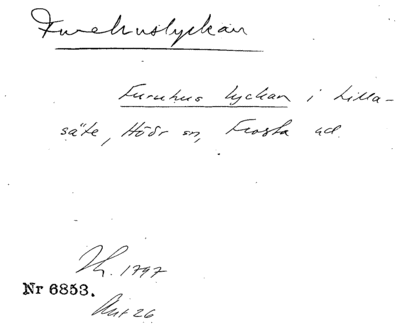 Furehuslyckan
Furuhus lyckan i Lilla-
säte, Höör sn, Frosta hd.
Th. 1797
Nr 6853.
Akt 26